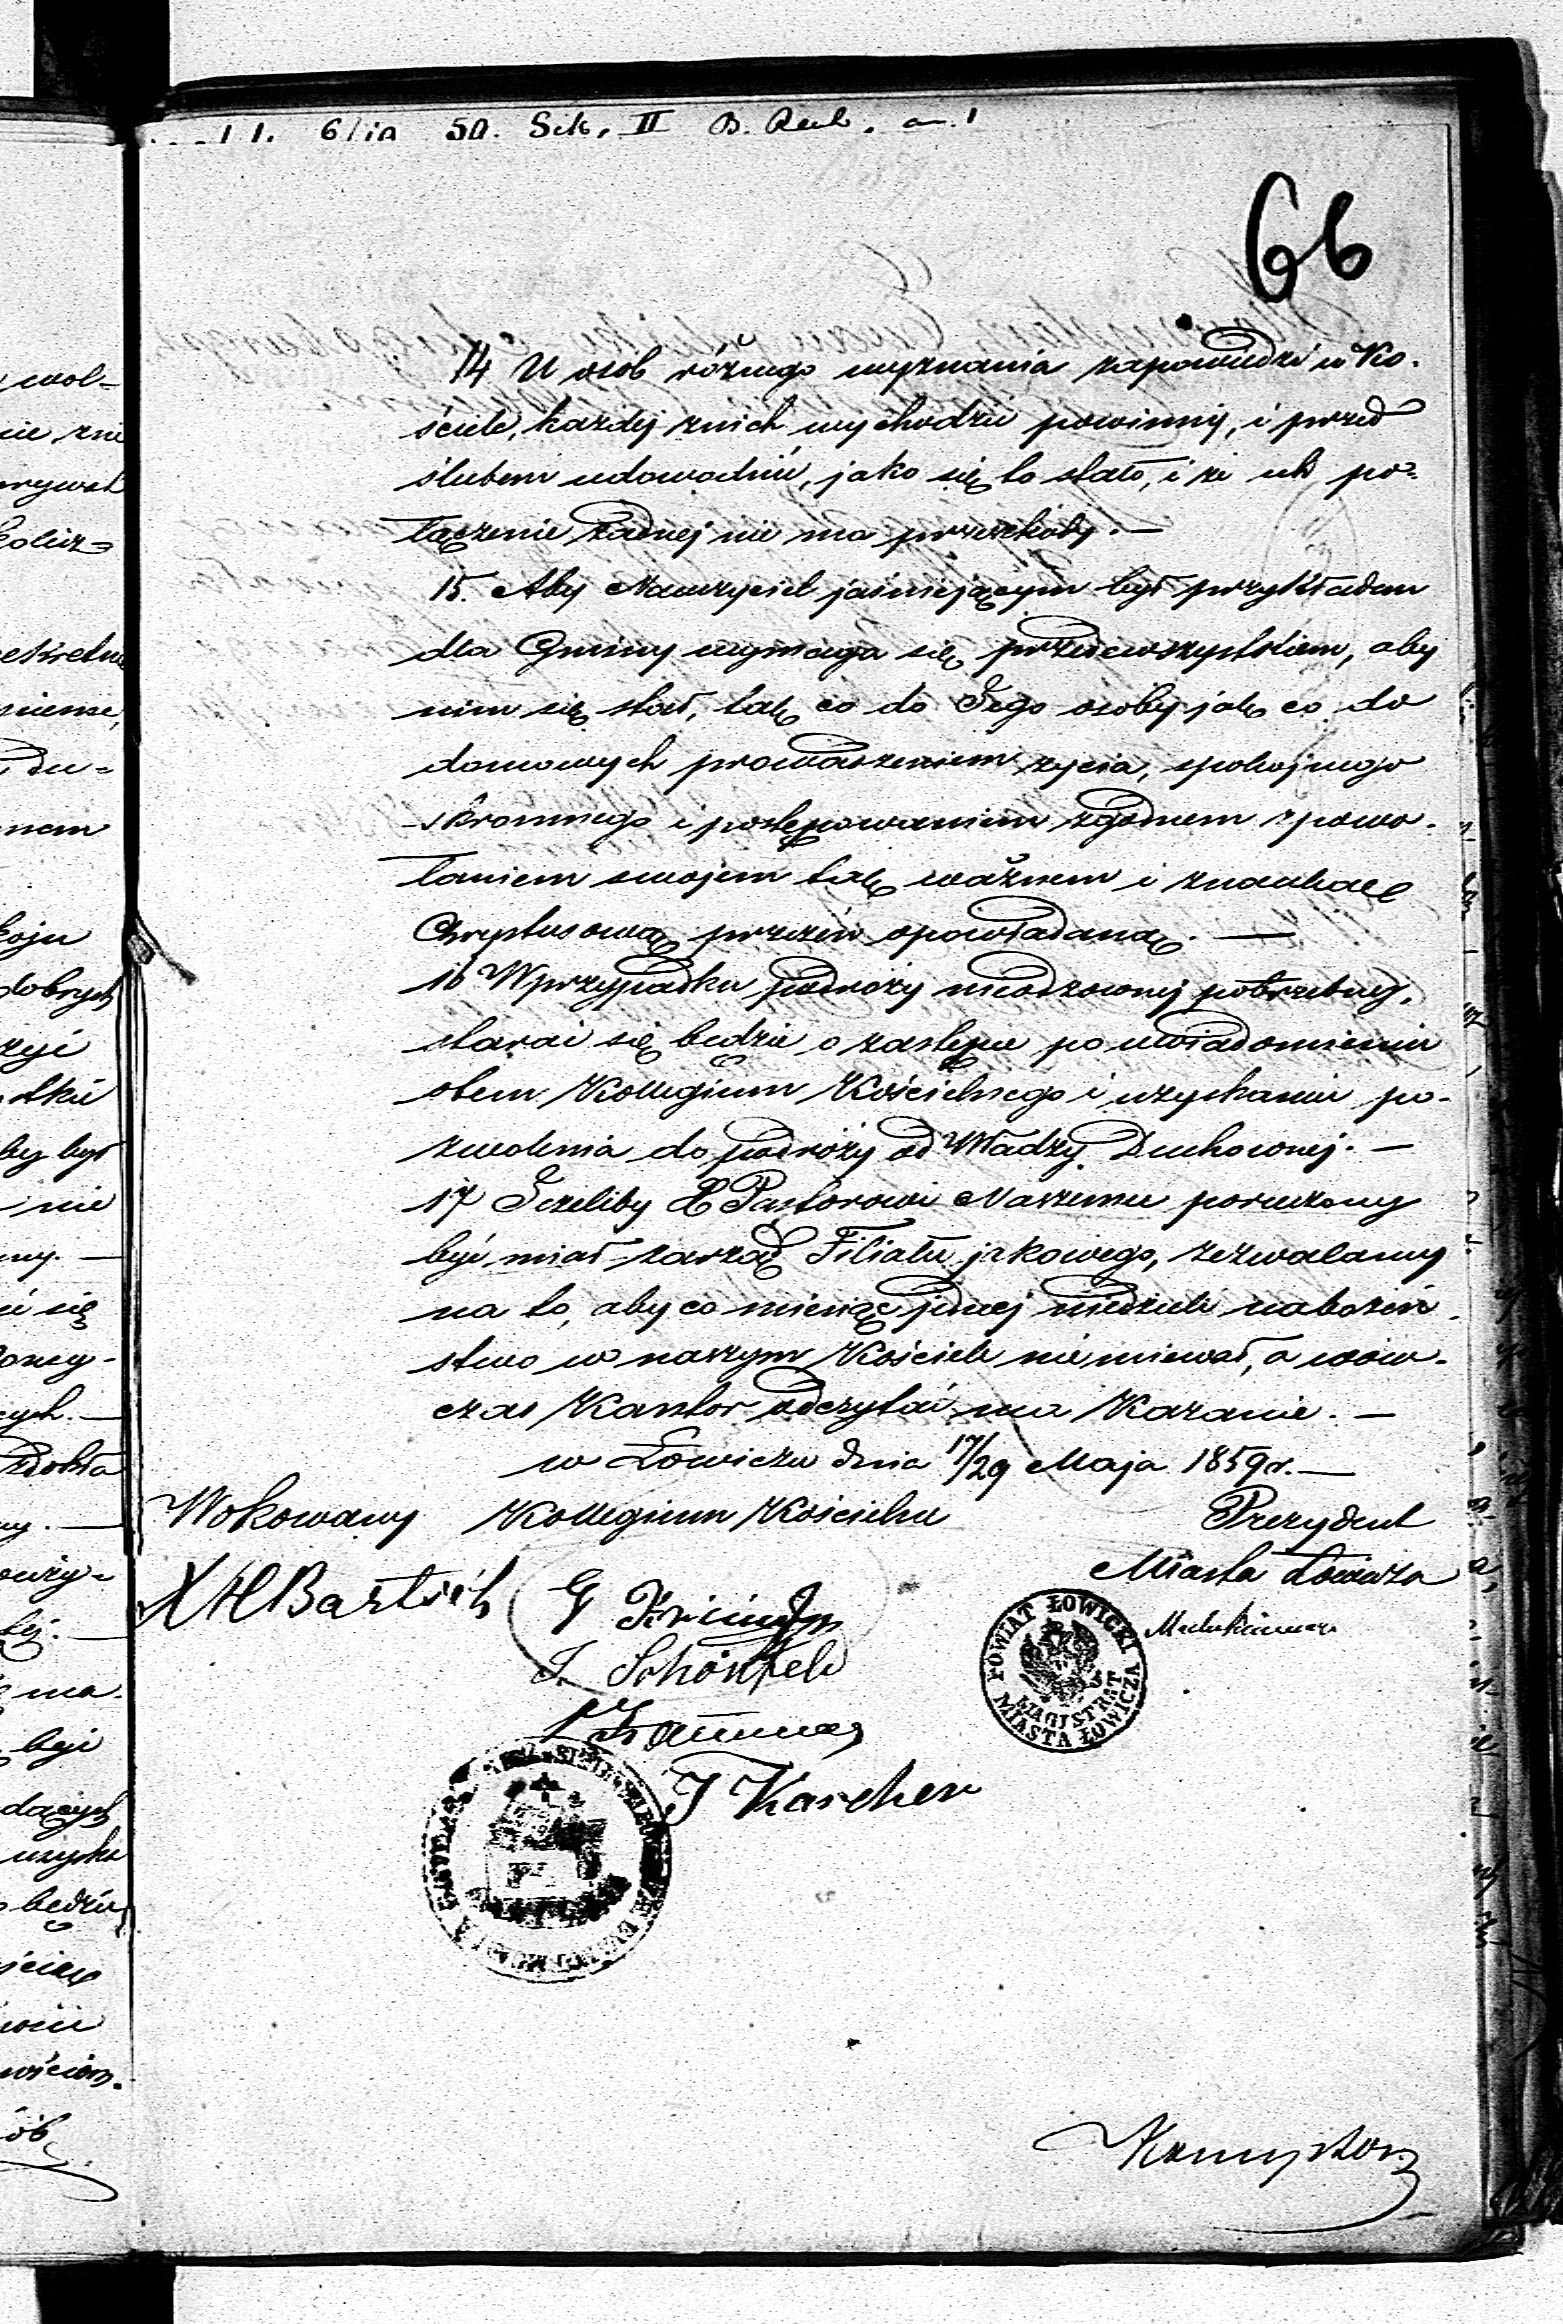 66
14 U osób różnego wyznania zapowiedzi w Ko-
ściele, każdej z nich wychodzić powinny, i przed
ślubem udowodnić, jako się to stało, i że ich po-
łączenie żadnej nie ma przeszkody. —
15. Aby Nauczyciel jaśniejącym był przykładem
dla Gminy wymaga się przedewszystkiem, aby
nim się stał, tak co do Jego osoby jak co do
domowych prowadzeniem życia, spokojnego
skromnego i postępowaniem zgodnem z powo-
łaniem swojem tak ważnem i z nauką
Chrystusową przezeń opowiadaną. —
16 W przypadku podróży nieodzownej potrzebnej,
starać się będzie o zastępcę po uwiadomieniu
otem Kollegium Kościelnego i uzyskaniu po-
zwolenia do podróży od Władzy Duchownej. —
17 Jeżeliby X Pastorowi Naszemu poruczony
być miał zarząd Filiału jakowego, zezwalamy
na to, aby co miesiąc jednej niedzieli nabożeń-
stwo w naszym Kościele nie miewał, a wów-
czas Kantor odczytać ma Kazanie. —
w Łowiczu dnia 17/29 Maja 1859 r. —
Wokowany Kollegium Kościelne Prezydent
Miasta Łowicza
X H Bartsch
J. Schönfeld
J Karcher
POWIAT ŁOWICKI
MAGISTRAT
MIASTA ŁOWICZA